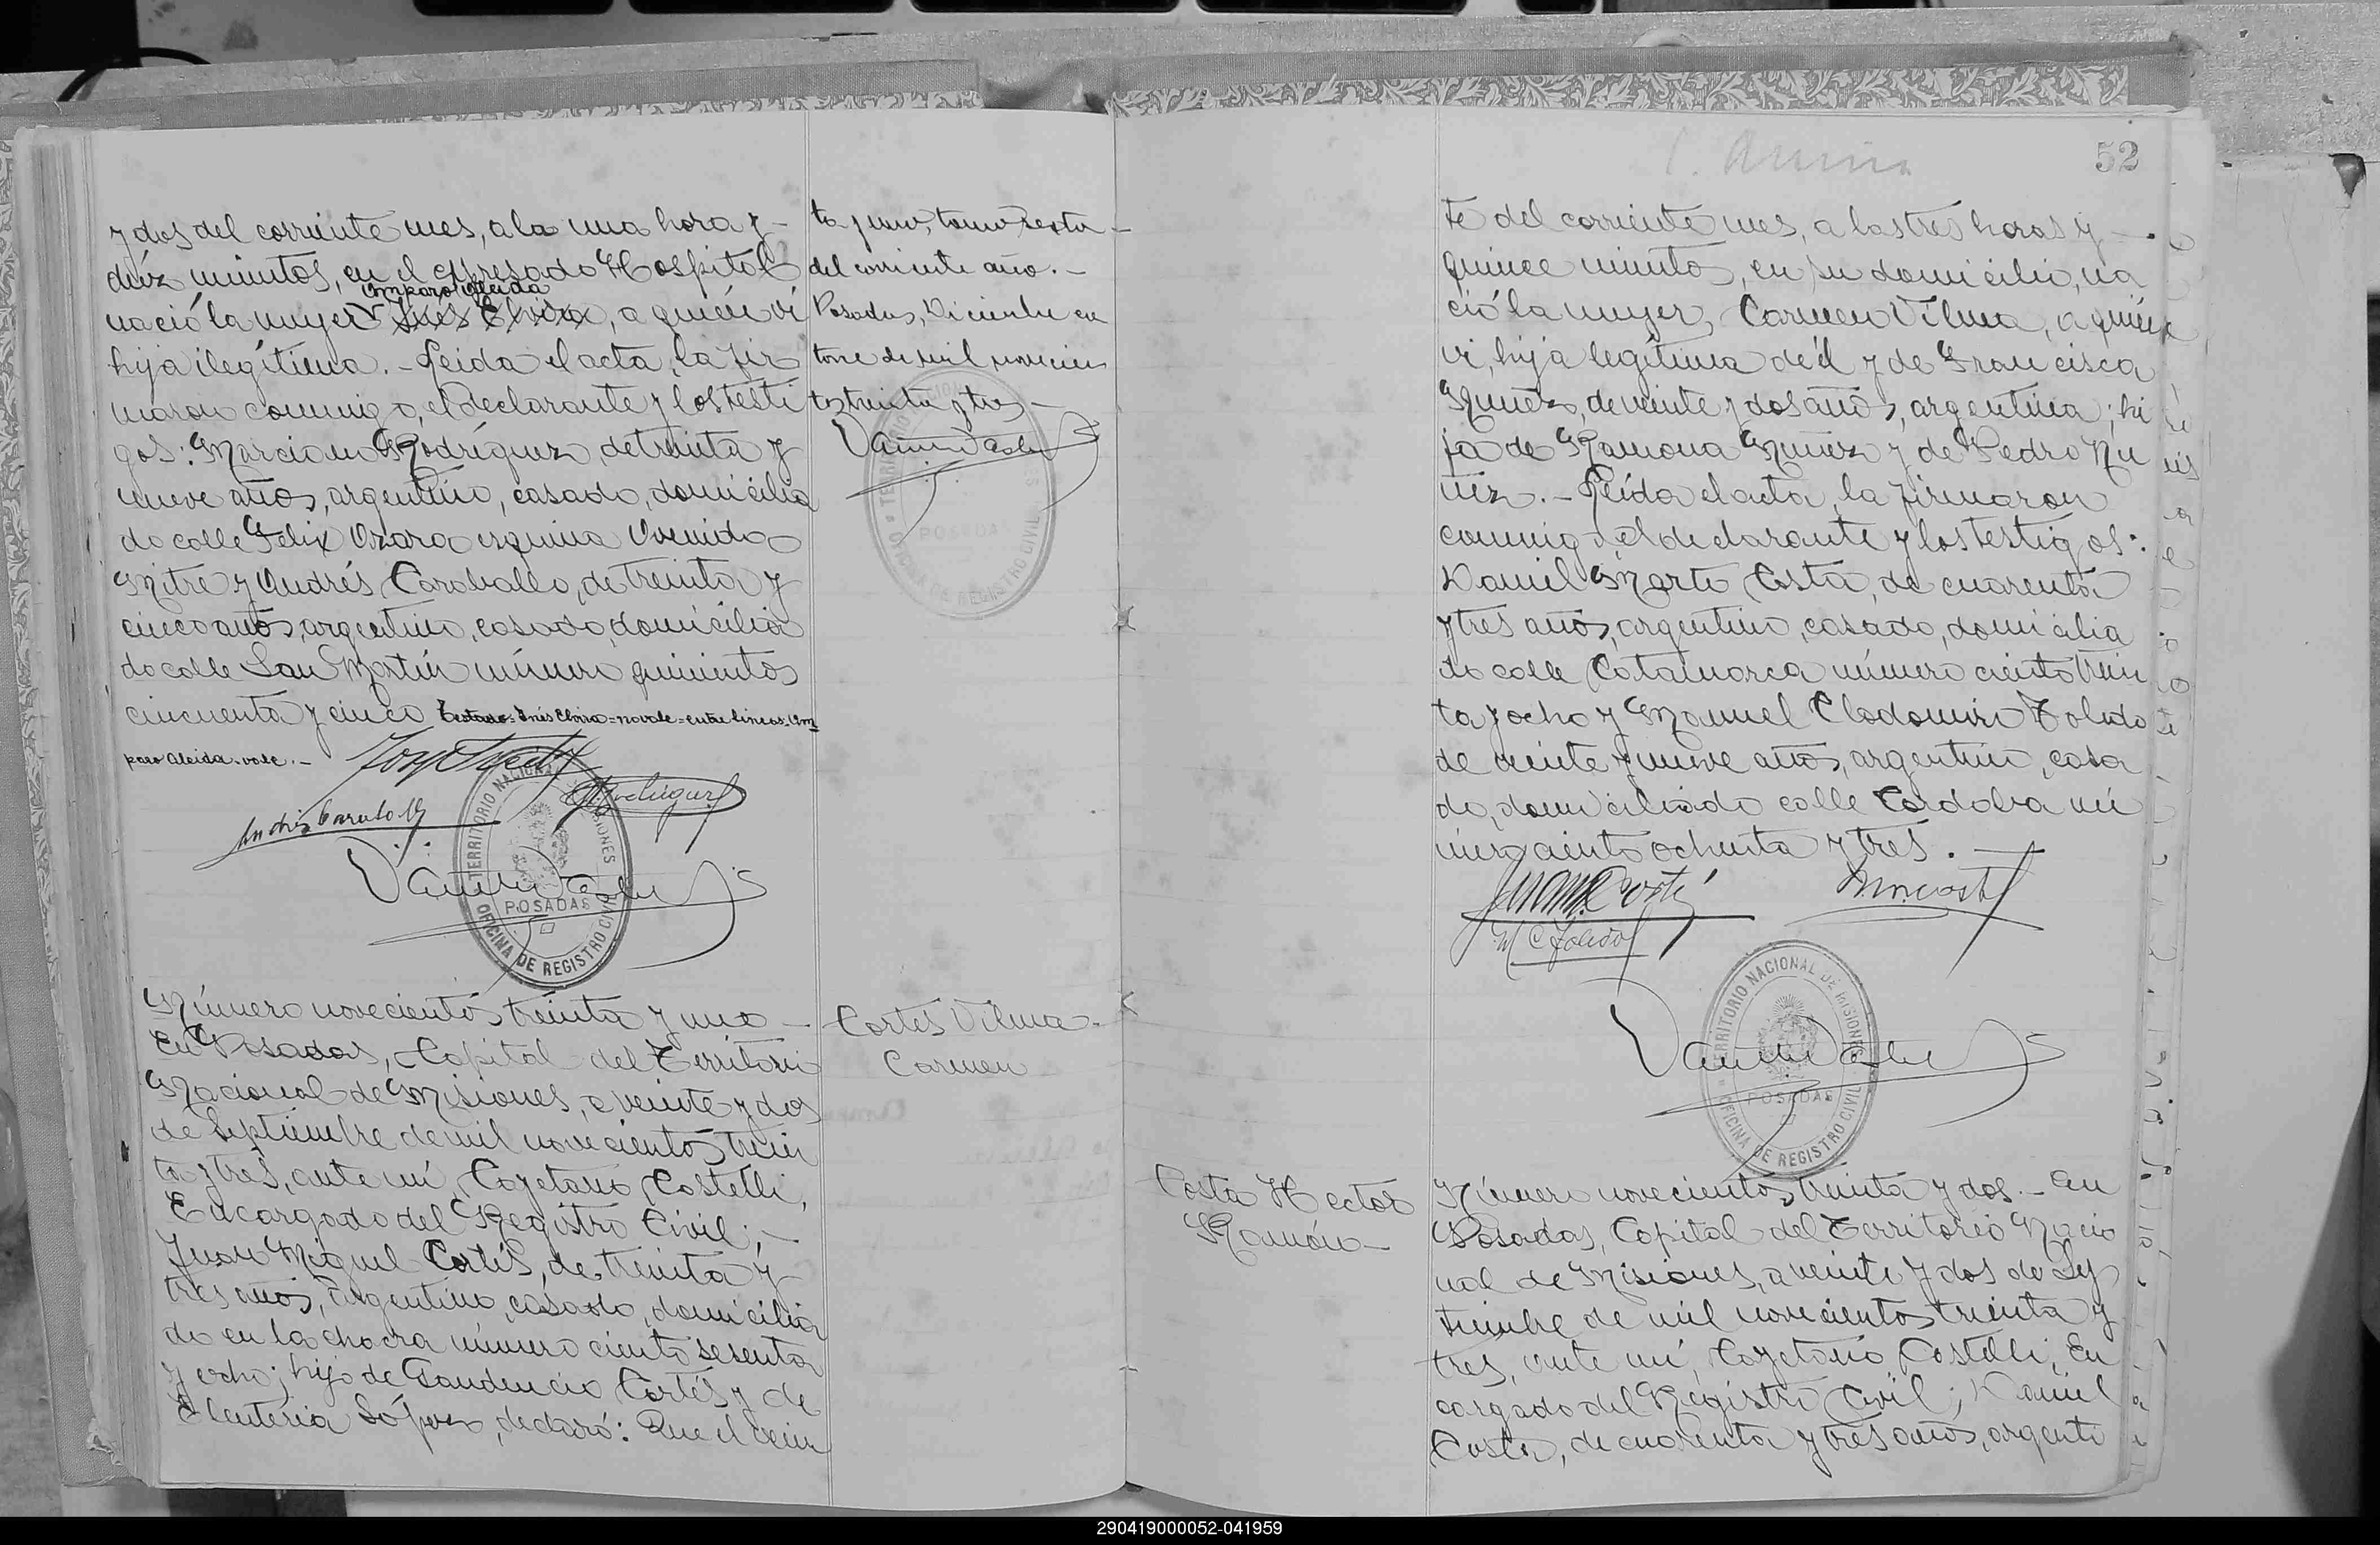 y dos del corriente mes, a la una hora y
diez minutos, en el expresado Hospital
Amparo Aleida
nació la mujer Inés Elvira, a quién ví
hija ilegítima. - Leida el acta, la fir
maron conmigo, el declarante y los testi
gos: Marciano Rodríguez, de treinta y
nueve años, argentino, casado, domicilia
do calle Felix Azara esquina Avenida
Mitre y Andrés Caraballo, de treinta y
cinco años, argentino, casado, domicilia
do calle San Martín número quinientos
cincuenta y cinco Testado = Inés Elvira = no vale = entre líneas = Am
paro Aleida. vale. -
TERRITORIO NACIONAL DE MISIONES
POSADAS
OFICINA DE REGISTRO CIVIL
Número novecientos treinta y uno -
En Posadas, Capital del Territorio
Nacional de Misiones, a veinte y dos
de Septiembre de mil novecientos trein
ta y tres, ante mí, Cayetano Castelli,
Encargado del Registro Civil; -
Juan Miguel Cortés, de treinta y
tres años, argentino, casado, domicilia
do en la chacra número ciento sesenta
y ocho; hijo de Gaudencio Cortés y de
Eleuteria López, declaró: Que el vein
ta y uno, tomo sexto -
del corriente año. -
Posadas, Diciembre ca
torce de mil novecien
tos treinta y tres -
POSADAS
OFICINA DE REGISTRO CIVIL
Cortes Vilma -
Carmen
52
te del corriente mes, a las tres horas y -
quince minutos, en su domicilio, na
ció la mujer, Carmen Vilma, a quién
vi, hija legítima de él y de Francisca
Núñez, de veinte y dos años, argentina; hi
ja de Ramona Núñez y de Pedro Nú
ñez. - Leída el acta, la firmaron
conmigo, el declarante y los testigos:
Daniel Marte Costa, de cuarenta
y tres años, argentino, casado, domicilia
do calle Catamarca número ciento trein
ta y ocho y Manuel Clodomiro Toledo
de veinte y nueve años, argentino, casa
do, domiciliado calle Córdoba nú
mero ciento ochenta y tres. -
Juan M. Cortés
M. C. Toledo
TERRITORIO NACIONAL DE MISIONES
POSADAS
OFICINA DE REGISTRO CIVIL
Costa Hector
Ramón -
Número novecientos treinta y dos. - En
Posadas, Capital del Territorio Nacio
nal de Misiones, a veinte y dos de Sep
tiembre de mil novecientos treinta y
tres, ante mí, Cayetano Castelli, En
cargado del Registro Civil; Daniel
Costa, de cuarenta y tres años, argenti
290419000052-041959